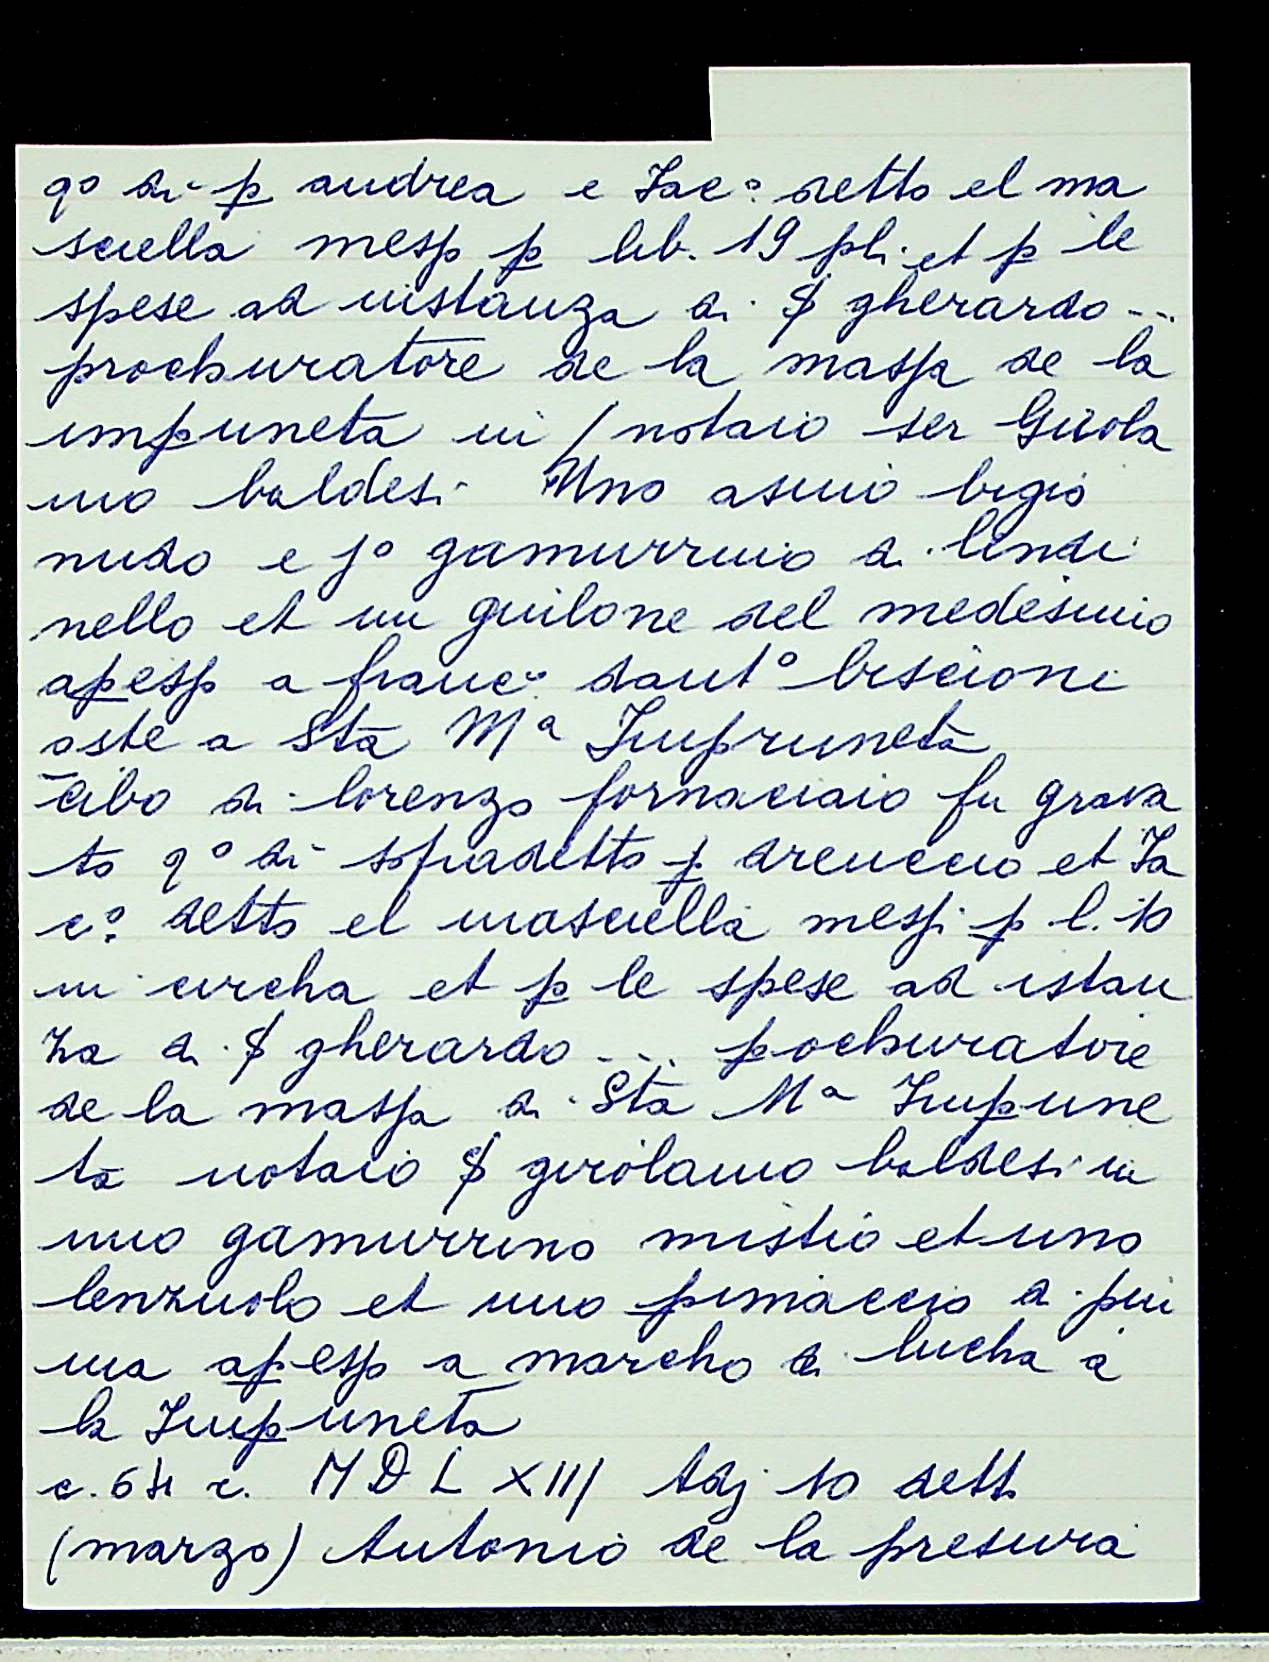 qo di p andrea e Jac.o detto el ma
sciella messp p lib. 19 pli. et p le
spese ad instanza di $ gherardo ...
prochuratore de la massa de la
impuneta in / notaio ser Girola
mo baldesi Uno asino bigio
nudo e jo gamurrino di lendi
nello et un guilone del medesimo
apesp a franc.o dant.o biscioni
oste a Sta Ma Impruneta
Cibo di lorenzo fornaciaio fu grava
to qo di sopradetto p drenccio et Ja
c.o detto el masciella messi p l. 10
in circha et p le spese ad istan
za di $ gherardo ... pochuratore
de la massa di Sta Ma Impune
ta notaio $ girolamo baldesi in
uno gamurrino mistio et uno
lenzuolo et uno pimaccio di piu
ma apesp a marcho di lucha a
la Impuneta
c. 64 r. MDLXIII Adj 10 dett.
(marzo) Antonio de la presura